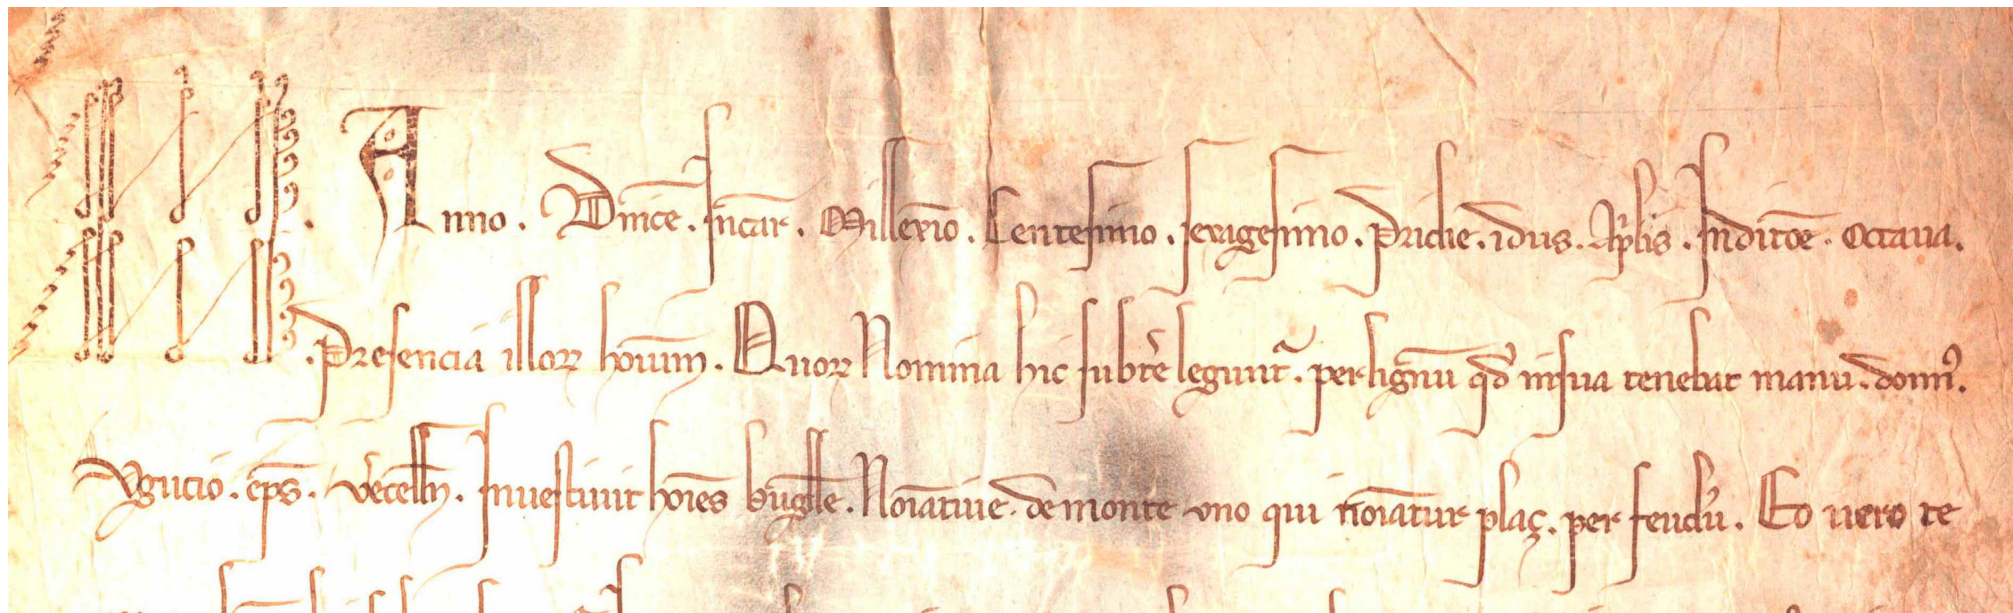 Anno. Dn̄ice. Incar̄. Millexīo. Centesimo. sexagesimo. Pridie. idus. Ap̄lis. Inditōe. octaua.
.Presencia illorꝝ hōium. Quorꝝ Nomina hic subtͥ legunt᷑. per lignū qd̓ in sua tenebat manu. domn᷒.
Vgucio. ep̄s. v̓cell̄n. Inuestiuit hoīes bugelle. Noīatiue. de monte uno qui noīatur plaç. per feudū. Eo uero te